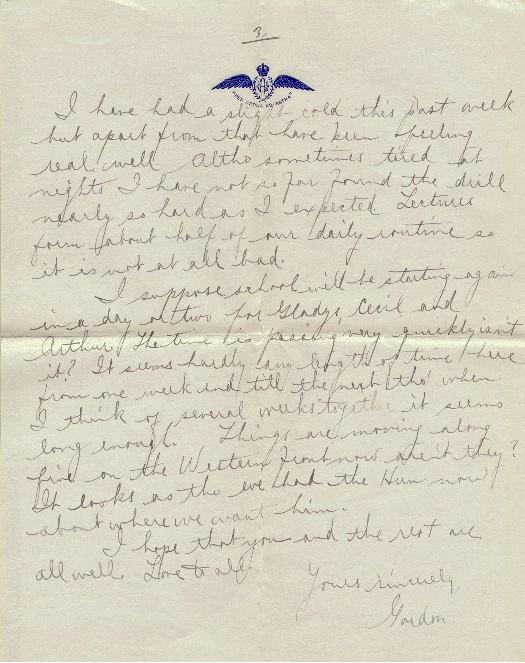 3.
I have had a slight cold this past week
but apart from that have been feeling
real well. Altho sometimes tired at
nights I have not so far found the drill
nearly so hard as I expected. Lectures
form about half of our daily routine so
it is not at all bad.
I suppose school will be starting again
in a day or two for Gladys, Cecil and
Arthur. The time is passing very quickly isn't
it? It seems hardly any length of time here
from one week end till the next tho' when
I think of several weeks together it seems
long enough. Things are moving along
fine on the Western front now aren't they?
It looks as tho we had the Hun now
about where we want him.
I hope that you and the rest are
all well. Love to all
Yours sincerely,
Gordon